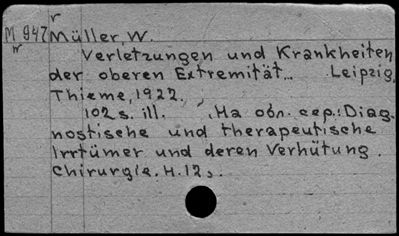 r
M 947 Müller, W.
w
Verletzungen und Krankheiten
der oberen Extremität... Leipzig,
Thieme, 1922.
102 s. ill. На обл. сер.: Diag-
nostische und therapeutische
Irrtümer und deren Verhütung.
Chirurgie. H. 12.